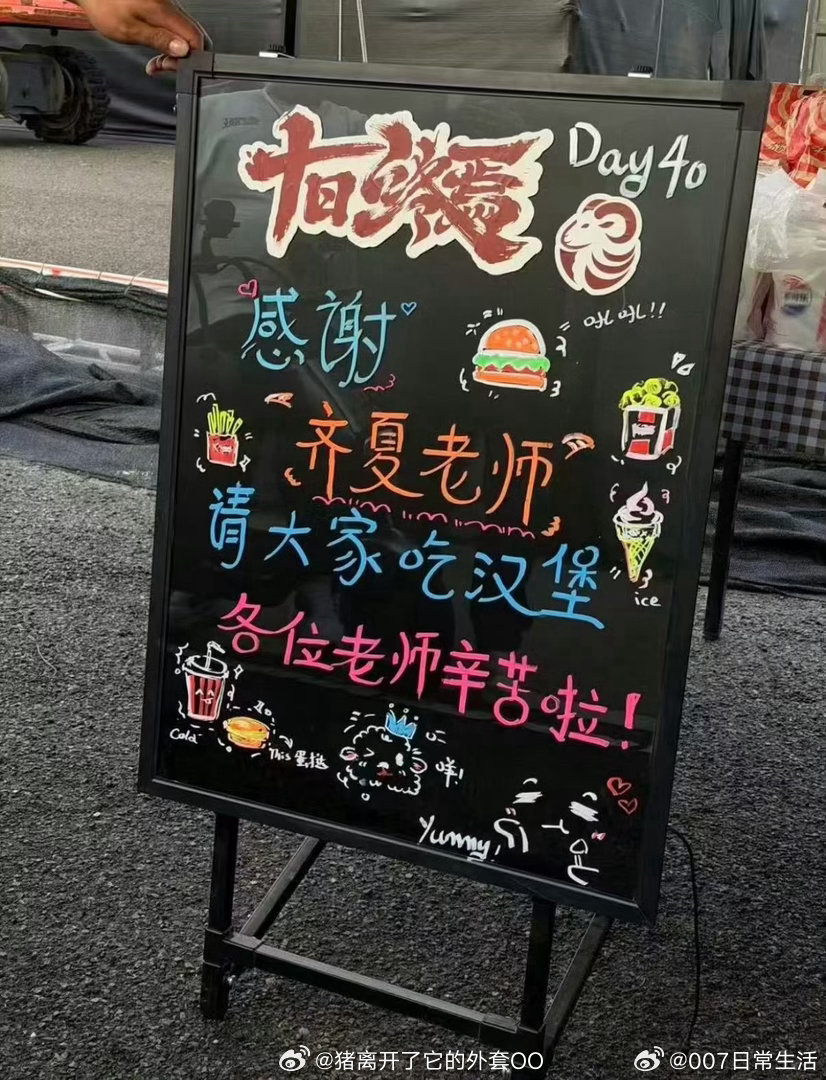 十日终焉 Day 40
感谢
吼吼!!
齐夏老师
请大家吃汉堡
ice
各位老师辛苦啦!
Cold
This 蛋挞
咩!
Yummy!
@猪离开了它的外套OO @007日常生活